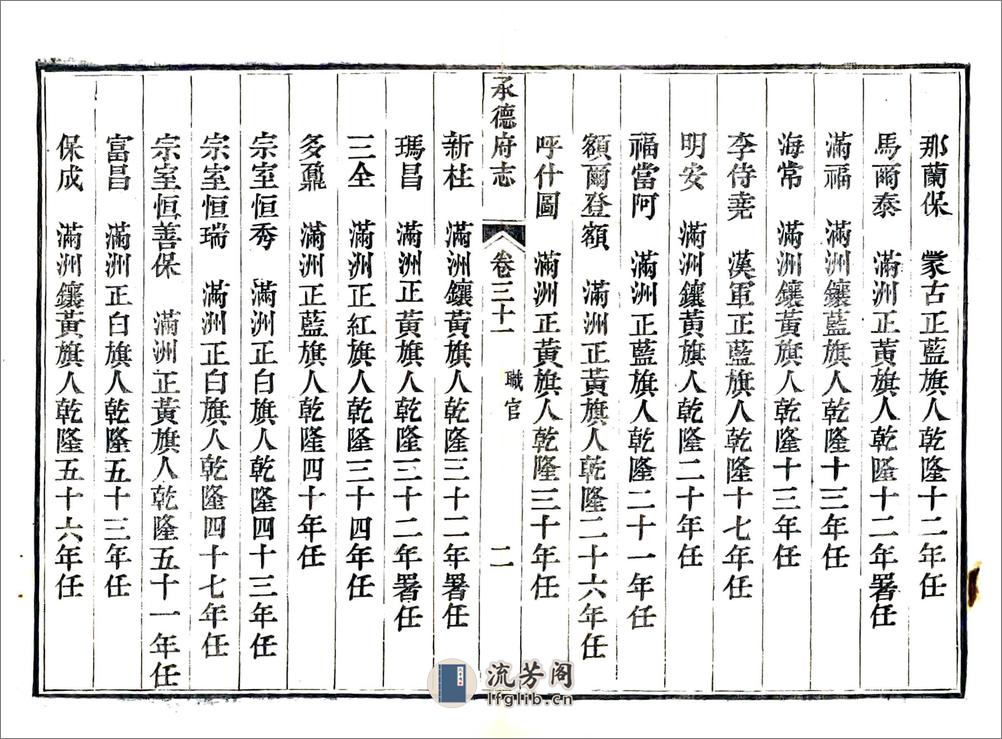 那蘭保　蒙古正藍旗人乾隆十二年任
馬爾泰　滿洲正黃旗人乾隆十二年署任
滿福　滿洲鑲藍旗人乾隆十三年任
海常　滿洲鑲黃旗人乾隆十三年任
李侍堯　漢軍正藍旗人乾隆十七年任
明安　滿洲鑲黃旗人乾隆二十年任
福當阿　滿洲正藍旗人乾隆二十一年任
額爾登額　滿洲正黃旗人乾隆二十六年任
呼什圖　滿洲正黃旗人乾隆三十年任
承德府志　卷三十一　職官　二
新柱　滿洲鑲黃旗人乾隆三十二年署任
瑪昌　滿洲正黃旗人乾隆三十二年署任
三全　滿洲正紅旗人乾隆三十四年任
多鼐　滿洲正藍旗人乾隆四十年任
宗室恒秀　滿洲正白旗人乾隆四十三年任
宗室恒瑞　滿洲正白旗人乾隆四十七年任
宗室恒善保　滿洲正黃旗人乾隆五十一年任
富昌　滿洲正白旗人乾隆五十三年任
保成　滿洲鑲黃旗人乾隆五十六年任
流芳阁
lfglib.cn